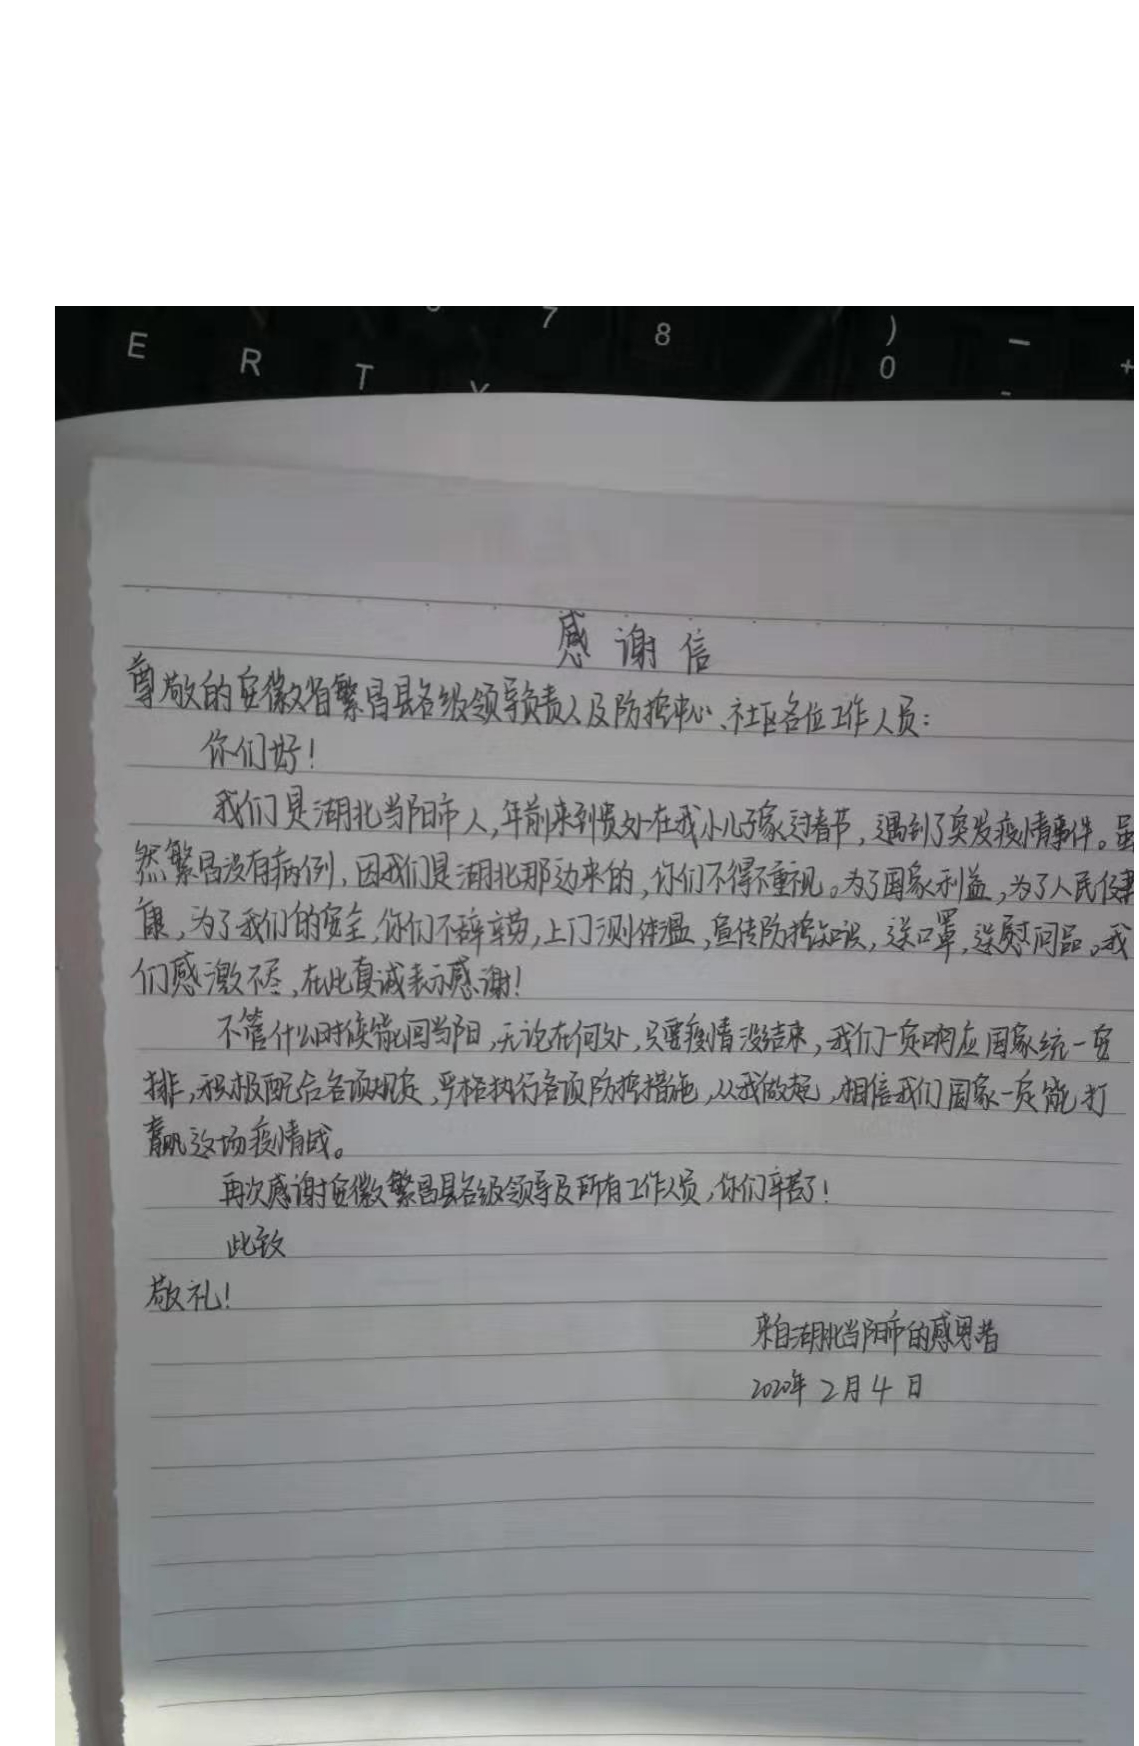 7 8 ) —
E R T Y 0 - +
感谢信
尊敬的安徽省繁昌县各级领导负责人及防控中心、社区各位工作人员:
你们好!
我们是湖北当阳市人,年前来到贵处在我小儿子家过春节,遇到了突发疫情事件。虽
然繁昌没有病例,因我们是湖北那边来的,你们不得不重视。为了国家利益,为了人民健
康,为了我们的安全,你们不辞辛劳,上门测体温,宣传防控知识,送口罩,送慰问品。我
们感激不尽,在此真诚表示感谢!
不管什么时候能回当阳,无论在何处,只要疫情没结束,我们一定响应国家统一安
排,积极配合各项规定,严格执行各项防控措施,从我做起,相信我们国家一定能打
赢这场疫情战。
再次感谢安徽繁昌县各级领导及所有工作人员,你们辛苦了!
此致
敬礼!
来自湖北当阳市的感恩者
2020年2月4日